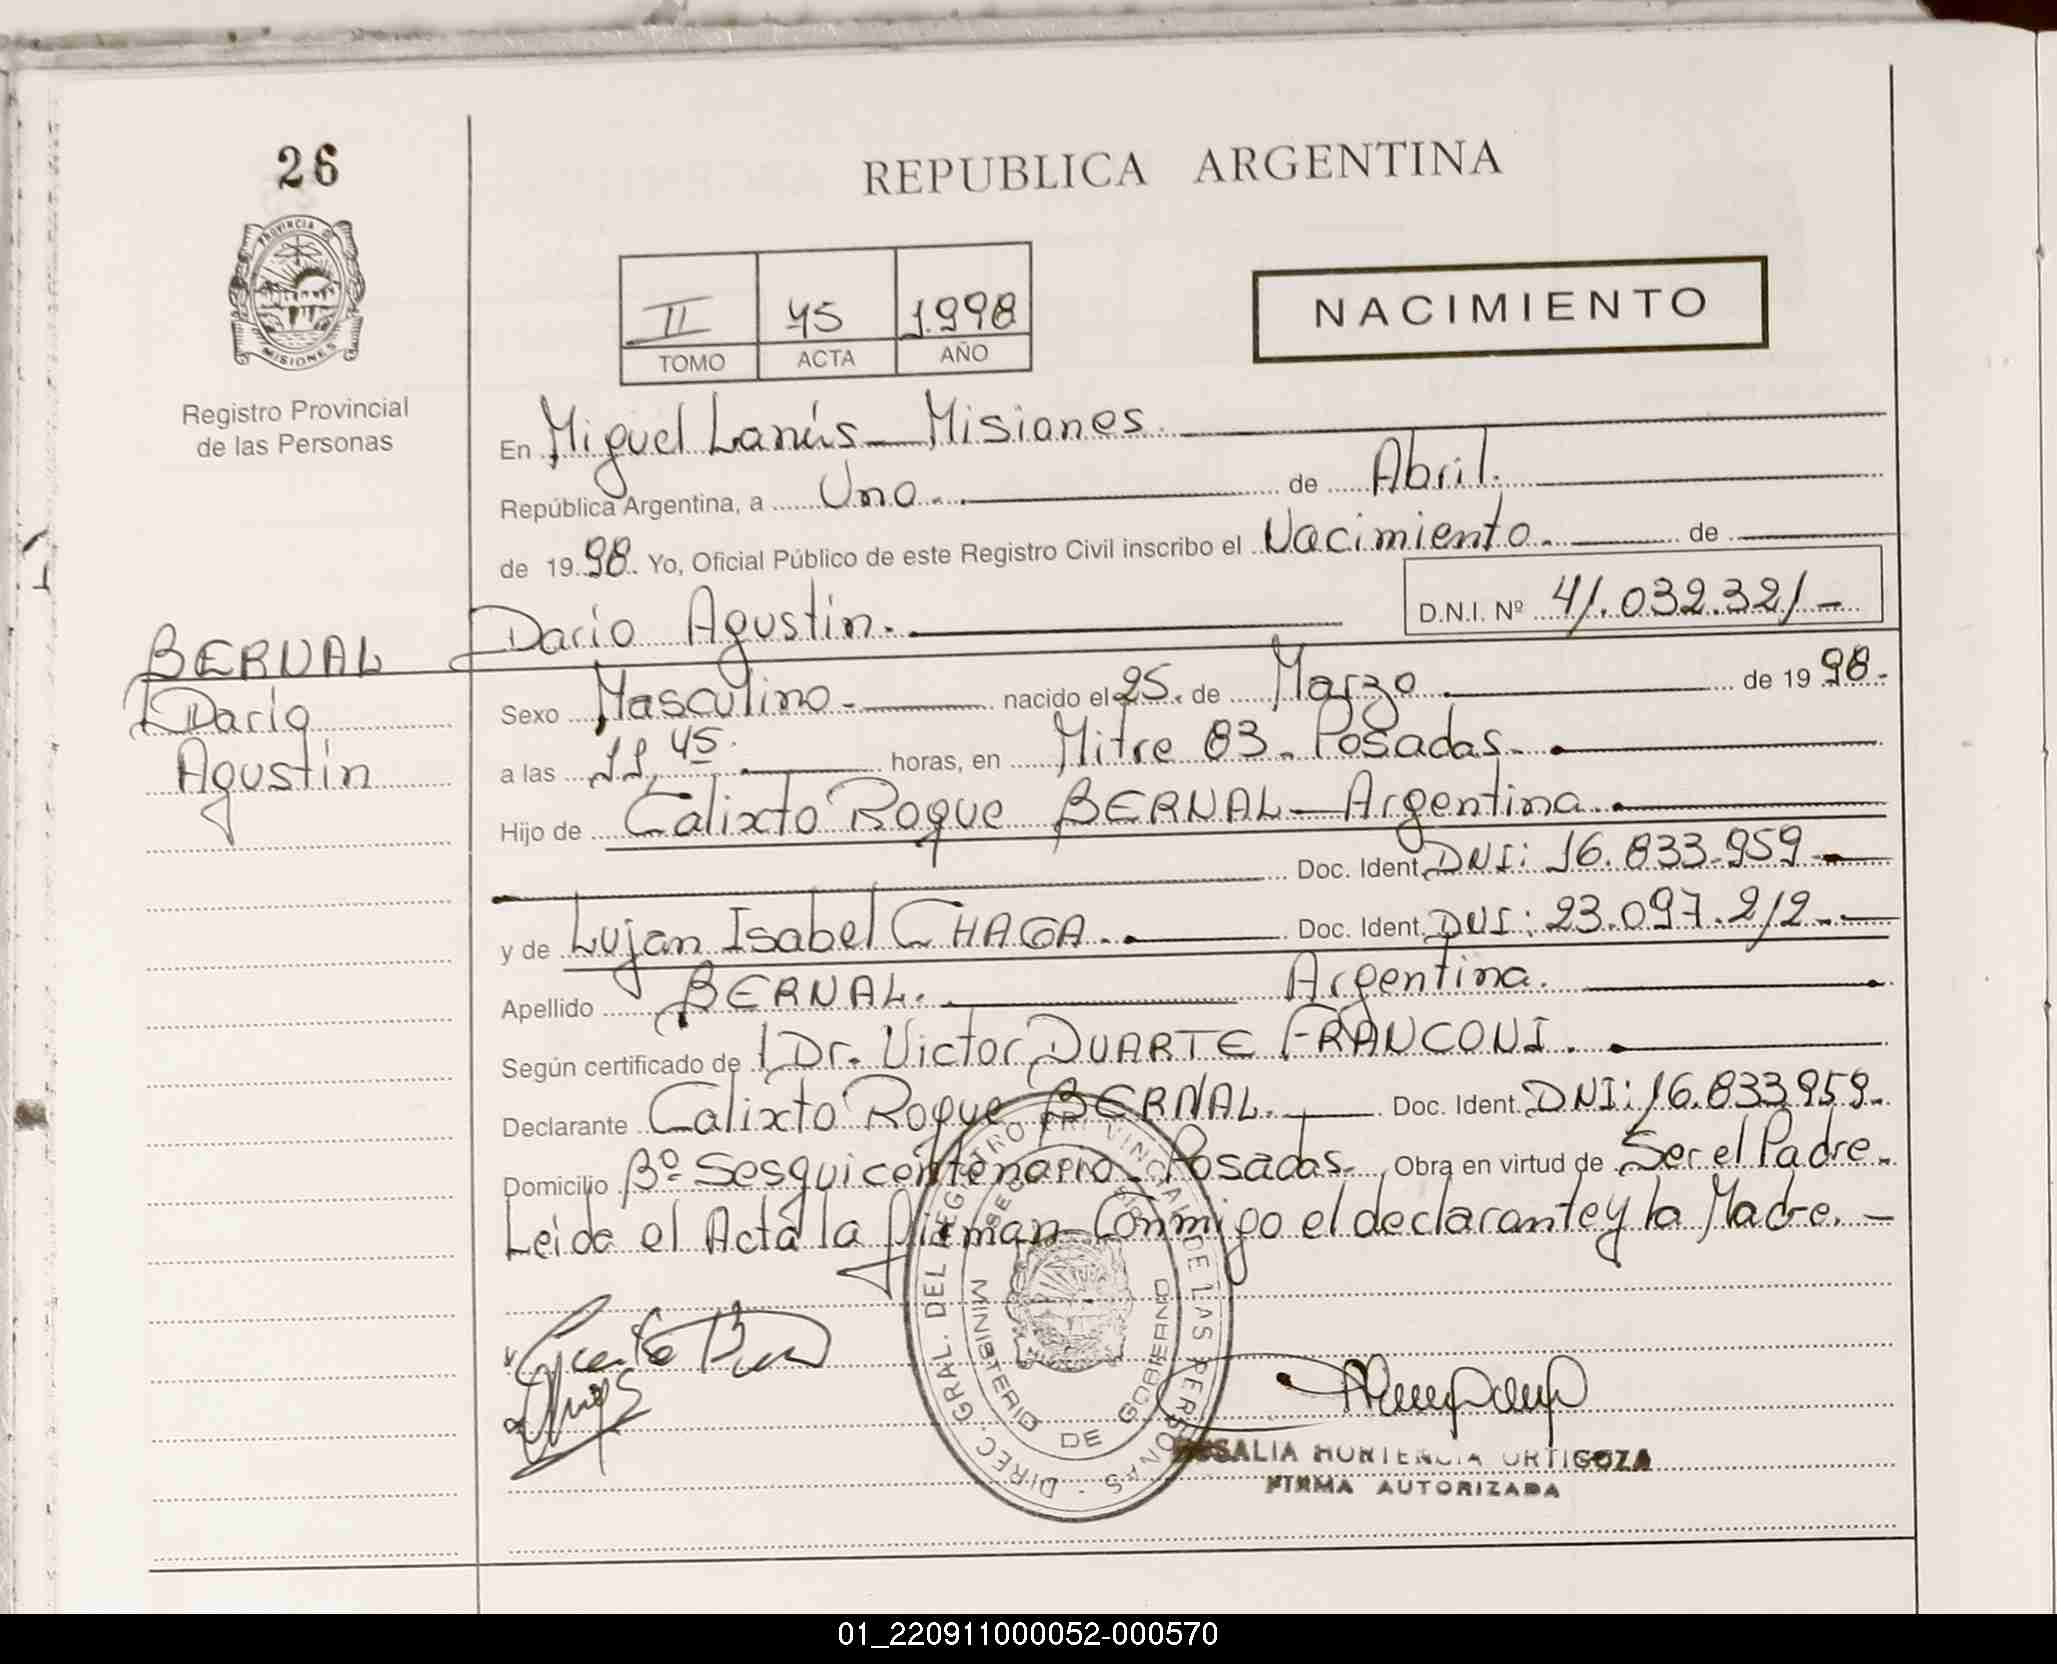 26
REPUBLICA ARGENTINA
PROVINCIA DE
MISIONES
Registro Provincial
de las Personas
II 45 1.998
TOMO ACTA AÑO
NACIMIENTO
En Miguel Lanús - Misiones.
República Argentina, a Uno. de Abril.
de 1998. Yo, Oficial Público de este Registro Civil inscribo el Nacimiento. de
Dario Agustin. D.N.I. Nº 41.032.321-
BERNAL
Dario
Agustin
Sexo Masculino - nacido el 25. de Marzo de 1998.-
a las 11,45. horas, en Mitre 83 - Posadas.
Hijo de Calixto Roque BERNAL - Argentina.
Doc. Ident. DNI: 16.833.959 -
y de Lujan Isabel CHAGA. Doc. Ident. DNI: 23.097.212 -
Apellido BERNAL. Argentina.
Según certificado de Dr. Victor DUARTE FRANCONI.
Declarante Calixto Roque BERNAL. Doc. Ident. DNI: 16.833.959.
Domicilio Bº Sesquicentenario - Posadas. Obra en virtud de Ser el Padre.
Leida el Acta la firman Conmigo el declarante y la Madre. -
DIREC. GRAL. DEL REGISTRO PROVINCIAL DE LAS PERSONAS
MINISTERIO DE GOBIERNO
ROSALIA HORTENCIA ORTIGOZA
FIRMA AUTORIZADA
01_220911000052-000570